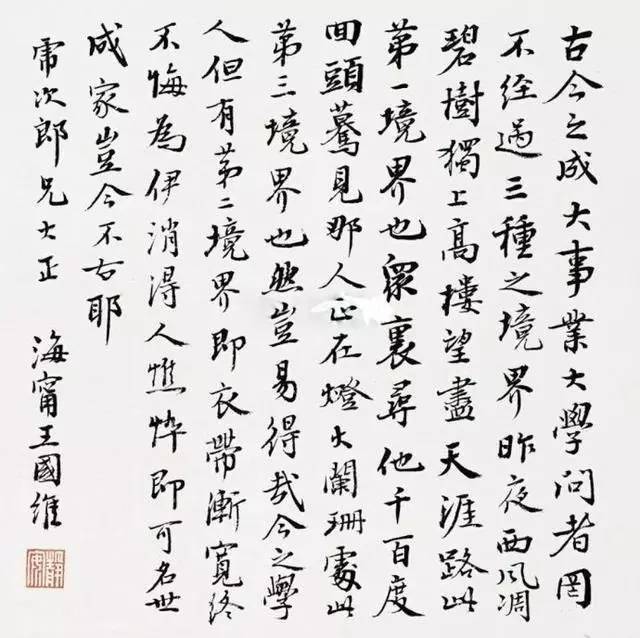 古今之成大事業大學問者罔
不經過三種之境界昨夜西風凋
碧樹獨上高樓望盡天涯路此
第一境界也眾裏尋他千百度
回頭驀見那人正在燈火闌珊處此
第三境界也然豈易得哉今之學
人但有第二境界即衣帶漸寬終
不悔為伊消得人憔悴即可名世
成家豈今不古耶
次郎兄大正
海甯王國維
靜安